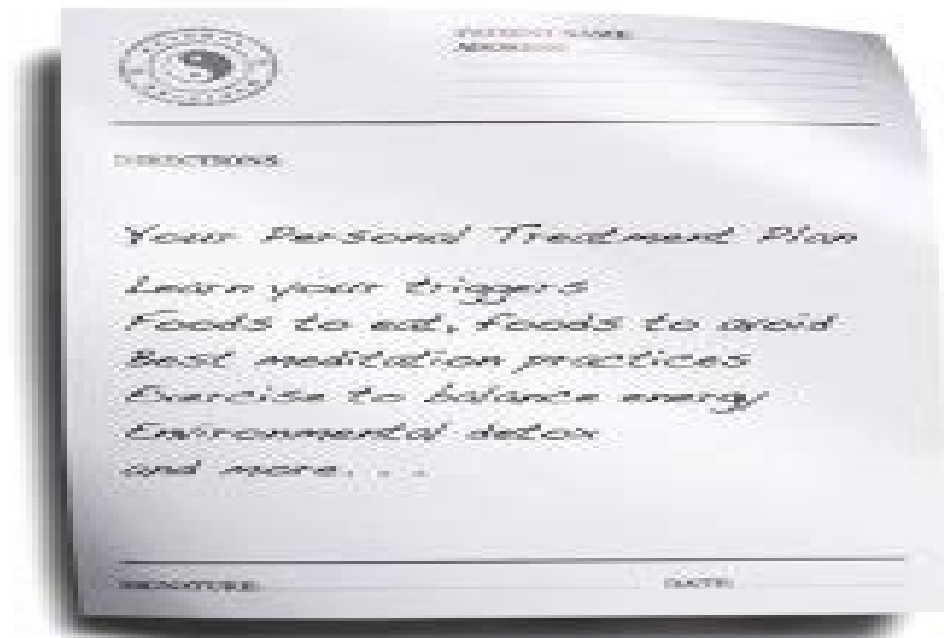 PATIENT NAME:
ADDRESS:
DIRECTIONS:
Your Personal Treatment Plan
Learn your triggers
Foods to eat, foods to avoid
Best meditation practices
Exercise to balance energy
Environmental detox
and more. . .
SIGNATURE:
DATE: